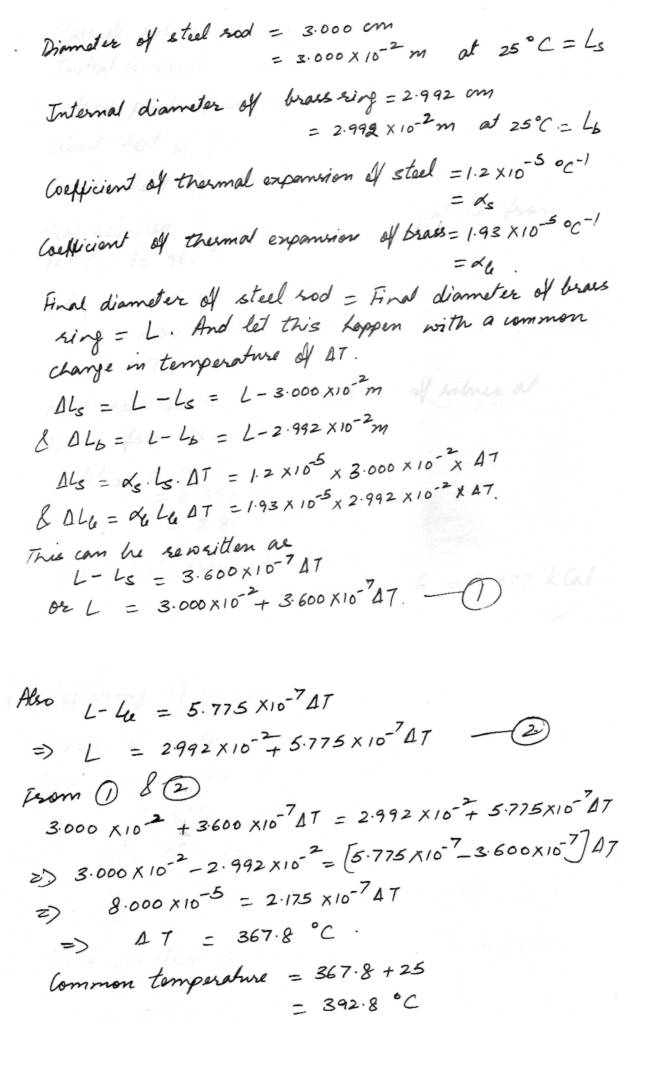 Diameter of steel rod = 3.000 cm
= 3.000 X 10⁻² m at 25°C = Ls
Internal diameter of brass ring = 2.992 cm
= 2.992 X 10⁻² m at 25°C = Lb
Coefficient of thermal expansion of steel = 1.2 X 10⁻⁵ °C⁻¹
= αs
Coefficient of thermal expansion of brass = 1.93 X 10⁻⁵ °C⁻¹
= αb.
Final diameter of steel rod = Final diameter of brass
ring = L. And let this happen with a common
change in temperature of ΔT.
ΔLs = L - Ls = L - 3.000 X 10⁻² m
& ΔLb = L - Lb = L - 2.992 X 10⁻² m
ΔLs = αs. Ls. ΔT = 1.2 X 10⁻⁵ x 3.000 x 10⁻² x ΔT
& ΔLb = αb Lb ΔT = 1.93 X 10⁻⁵ x 2.992 X 10⁻² X ΔT.
This can be rewritten as
L - Ls = 3.600 X 10⁻⁷ ΔT
or L = 3.000 X 10⁻² + 3.600 X 10⁻⁷ ΔT. — ①
Also L - Lb = 5.775 X 10⁻⁷ ΔT
⇒ L = 2.992 X 10⁻² + 5.775 X 10⁻⁷ ΔT — ②
From ① & ②
3.000 X 10⁻² + 3.600 X 10⁻⁷ ΔT = 2.992 X 10⁻² + 5.775 X 10⁻⁷ ΔT
⇒ 3.000 X 10⁻² - 2.992 X 10⁻² = [5.775 X 10⁻⁷ - 3.600 X 10⁻⁷] ΔT
⇒ 8.000 X 10⁻⁵ = 2.175 X 10⁻⁷ ΔT
⇒ ΔT = 367.8 °C.
Common temperature = 367.8 + 25
= 392.8 °C